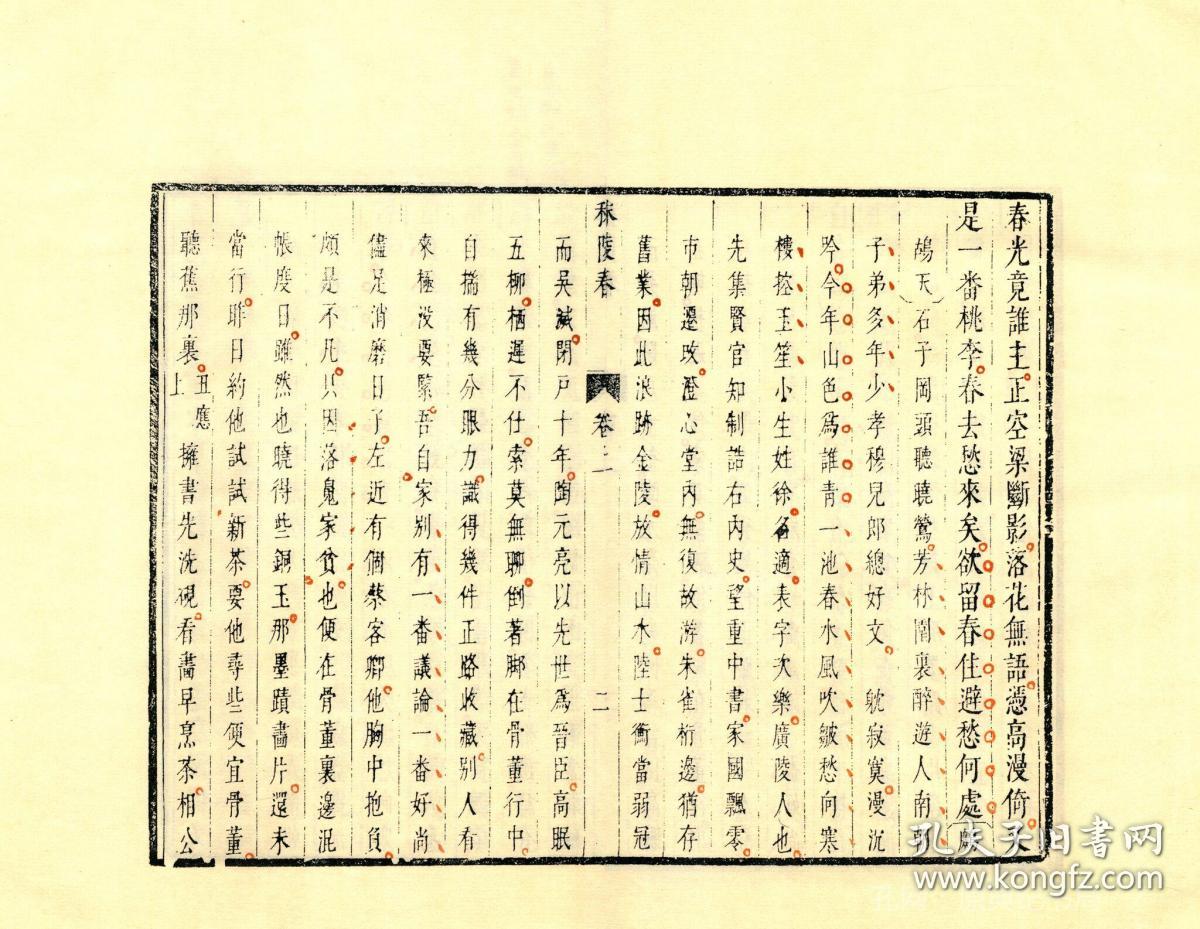 春光竟誰主正空梁斷影落花無語憑高漫倚又
是一番桃李春去愁來矣欲留春住避愁何處
鴣天石子岡頭聽曉鶯芳林園裏醉遊人南
子弟多年少孝穆兒郎總好文 歌寂寞漫沉
吟今年山色爲誰青一池春水風吹皺愁向寒
樓拴玉笙小生姓徐名適表字次樂廣陵人也
先集賢官知制誥右內史望重中書家國飄零
市朝遷改澄心堂內無復故游朱雀桁邊猶存
舊業因此浪跡金陵放情山水陸士衡當弱冠
秣陵春 卷上 二
而吳滅閉戸十年陶元亮以先世爲晉臣高眠
五柳栖遲不仕索莫無聊倒著脚在骨董行中
自搊有幾分眼力識得幾件正路收藏別人看
來極没要緊吾自家別有一番議論一番好尚
儘足消磨日子左近有個蔡客卿他胸中抱負
頗是不凡只因落魄家貧也便在骨董裏邊混
帳度日雖然也曉得些銅玉那墨蹟畵片還未
當行昨日約他試試新茶要他尋些便宜骨董
聽蕉那裏丑應上擁書先洗硯看畵早烹茶相公
孔夫子旧书网
www.kongfz.com